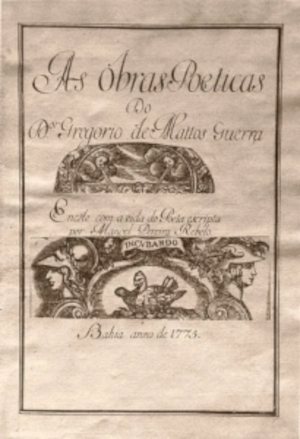 As Obras Poeticas
Do
Dr Gregorio de Mattos Guerra
com a vida do Poeta escripta
por Manoel Pereira Rebelo
INCUBANDO
Bahia anno de 1775.